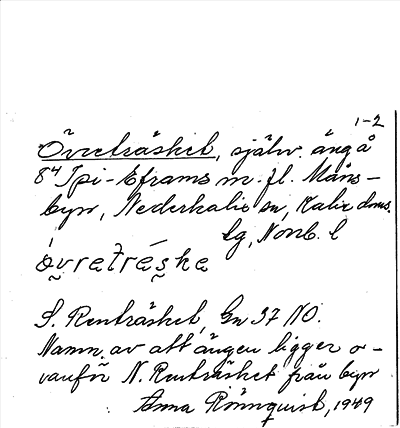 1-2
Övreträsket, själv. äng å
8⁴ Tpi-Eframs m. fl. Måns-
byn, Nederkalix sn, Kalix doms.
lg, Norrb. l
övreträske
S. Renträsket, Gw 37 NO.
Namn. av att ängen ligger o-
vanför N. Renträsket från byn
Anna Rönnquist, 1949